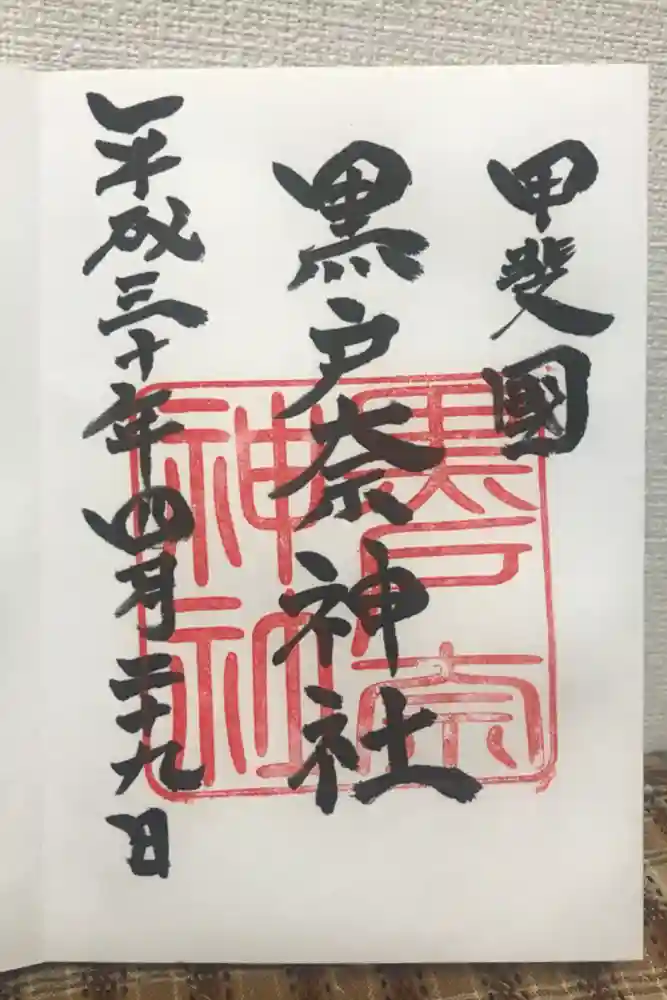 甲斐國
黒戸奈神社
平成三十年四月二十九日
黒戸奈
神社